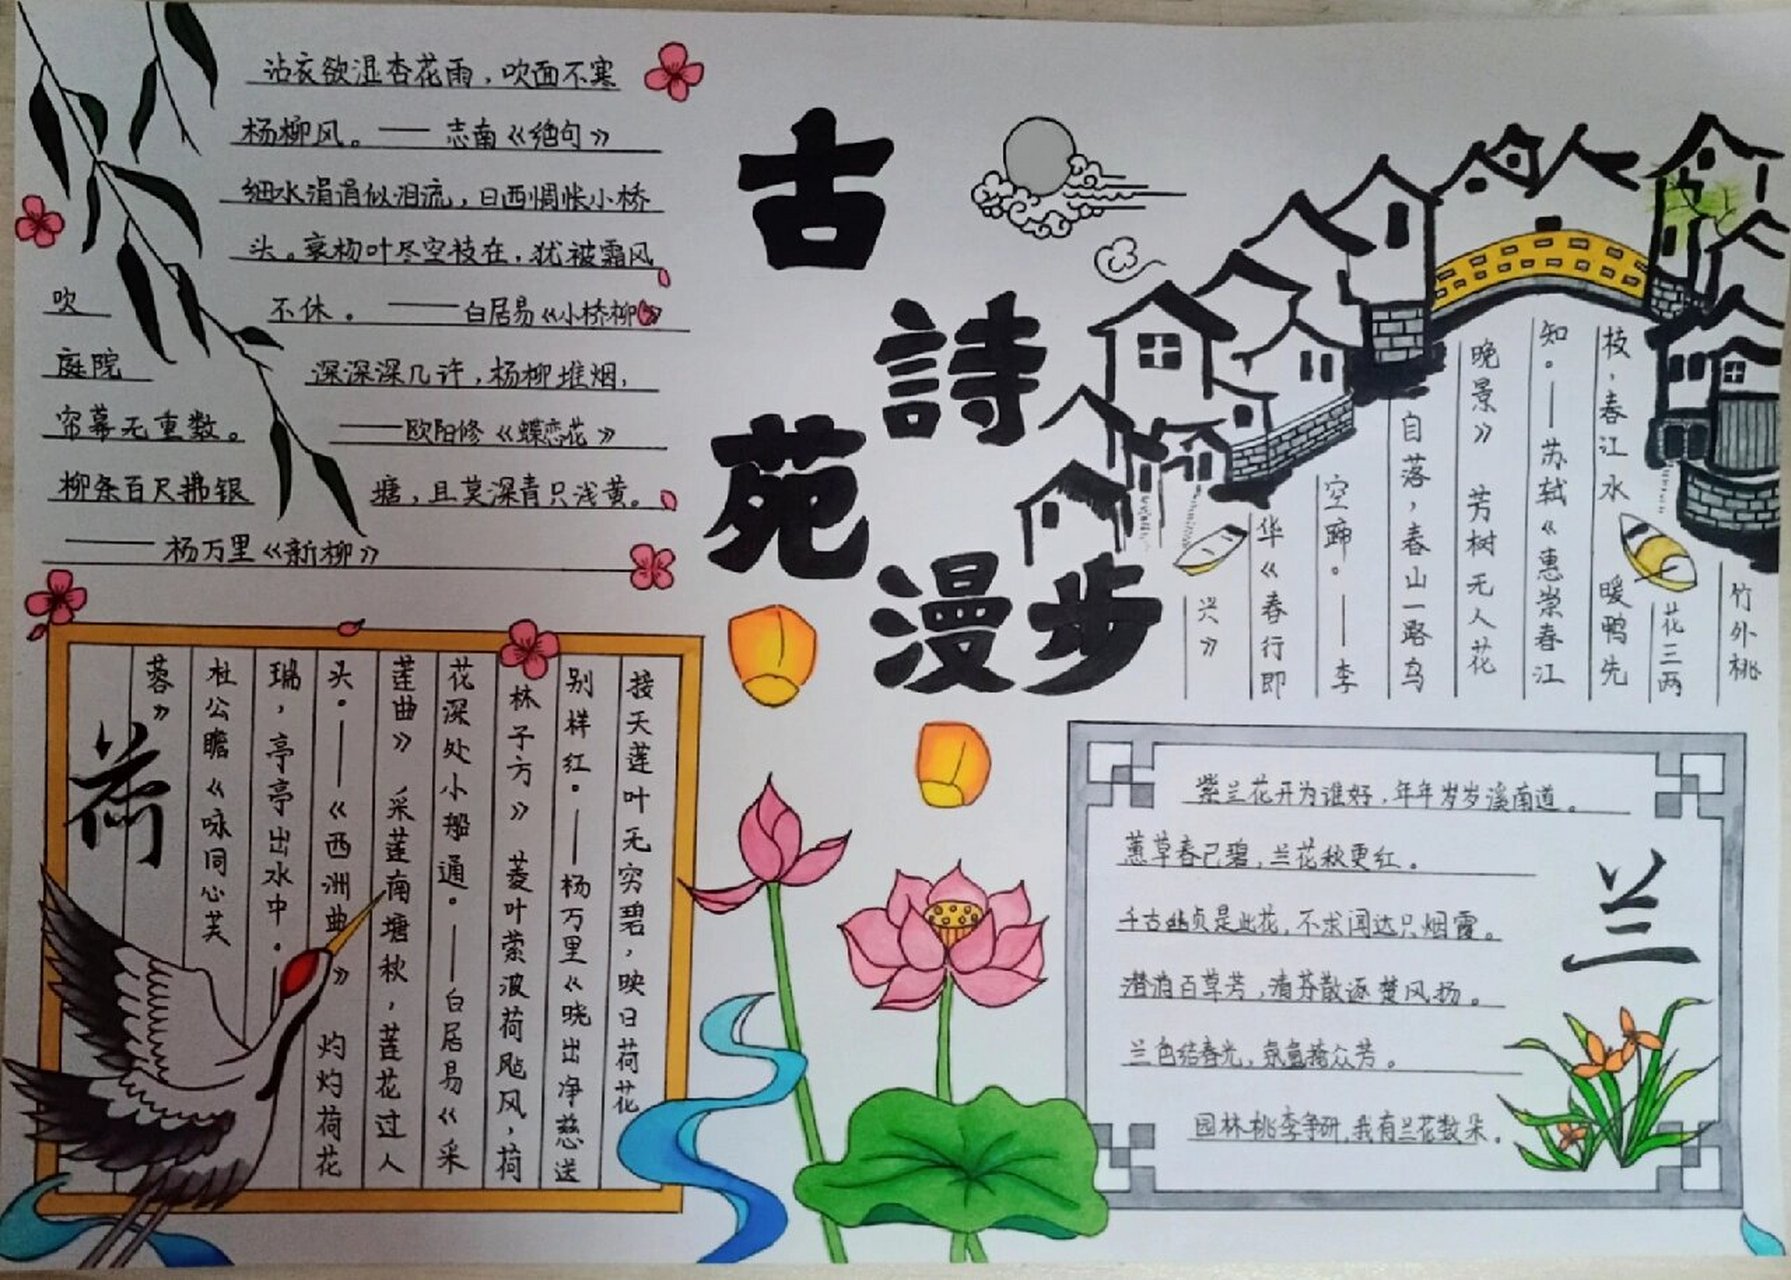 沾衣欲湿杏花雨，吹面不寒
杨柳风。——志南《绝句》
细水涓涓似泪流，日西惆怅小桥
头。衰杨叶尽空枝在，犹被霜风
吹 不休。——白居易《小桥柳》
庭院 深深深几许，杨柳堆烟，
帘幕无重数。——欧阳修《蝶恋花》
柳条百尺拂银 塘，且莫深青只浅黄。
——杨万里《新柳》
古
詩
苑
漫步
竹外桃
花三两
枝，春江水 暖鸭先
知。——苏轼《惠崇春江
晚景》 芳树无人花
自落，春山一路鸟
空蹄。——李
华《春行即
兴》
接天莲叶无穷碧，映日荷花
别样红。——杨万里《晓出净慈送
林子方》 菱叶萦波荷飐风，荷
花深处小船通。——白居易《采
莲曲》 采莲南塘秋，莲花过人
头。——《西洲曲》 灼灼荷花
瑞，亭亭出水中。——
杜公瞻《咏同心芙
蓉》
荷
紫兰花开为谁好，年年岁岁溪南道。
蕙草春已碧，兰花秋更红。
千古幽贞是此花，不求闻达只烟霞。
百草芳，清芬散逐楚风扬。
兰色结春光，氛氲掩众芳。
园林桃李争研，我有兰花数朵。
兰